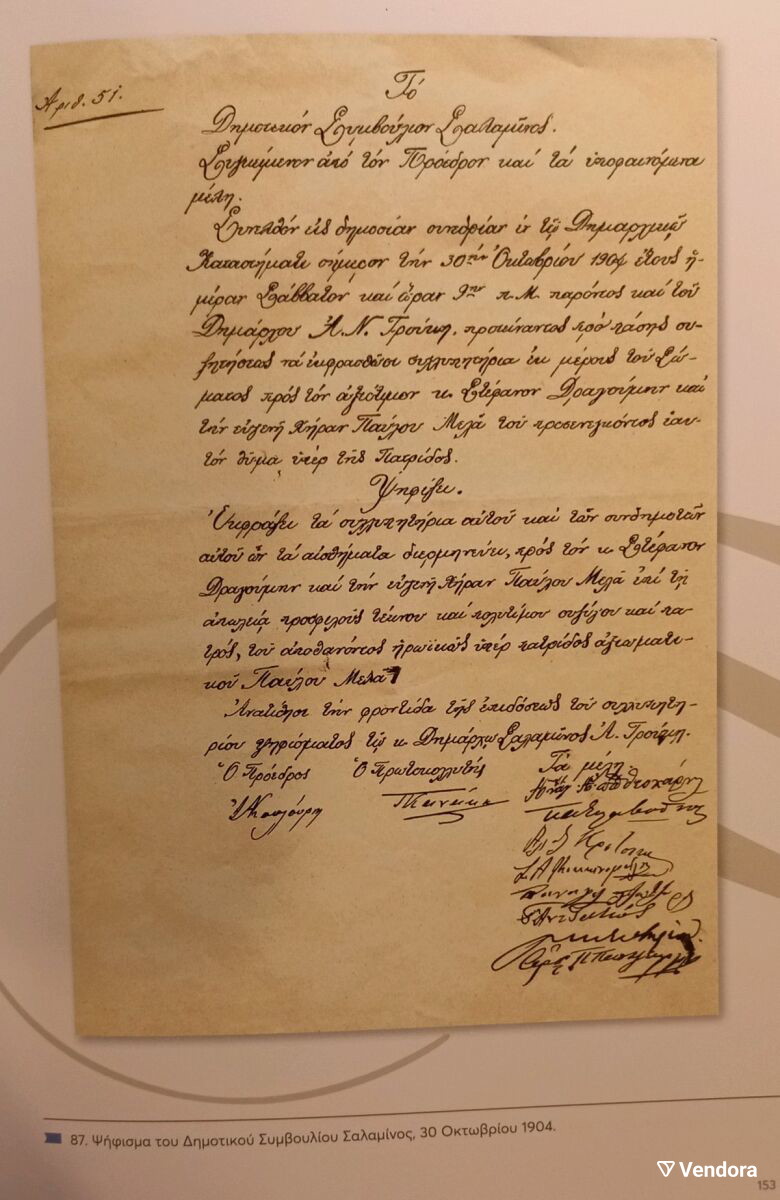 Ἀριθ. 51.
Τό
Δημοτικόν Συμβούλιον Σαλαμῖνος.
Συγκείμενον ἀπό τόν Πρόεδρον καί τά ὑποφαινόμενα
μέλη.
Συνελθόν εἰς δημοσίαν συνεδρίαν ἐν τῷ Δημαρχικῷ
Καταστήματι σήμερον τήν 30ήν Ὀκτωβρίου 1904 ἔτους ἡ-
μέραν Σάββατον καί ὥραν 9ην π.Μ. παρόντος καί τοῦ
Δημάρχου Ἀ. Ν. προτείναντος πρό πάσης συ-
ζητήσεως νά ἐκφρασθῶσι συλλυπητήρια ἐκ μέρους τοῦ Σώ-
ματος πρός τόν ἀξιότιμον κ. Στέφανον Δραγούμην καί
τήν εὐγενῆ Χήραν Παύλου Μελᾶ τοῦ προσενεγκόντος ἑαυ-
τόν θῦμα ὑπέρ τῆς Πατρίδος.
Ψηφίζει.
Ἐκφράζει τά συλλυπητήρια αὐτοῦ καί τῶν συνδημοτῶν
αὐτοῦ ὧν τά αἰσθήματα διερμηνεύει, πρός τόν κ. Στέφανον
Δραγούμην καί τήν εὐγενῆ Χήραν Παύλου Μελᾶ ἐπί τῇ
ἀπωλείᾳ προσφιλοῦς τέκνου καί πολυτίμου συζύγου καί πα-
τρός, τοῦ ἀποθανόντος ἡρωϊκῶς ὑπέρ πατρίδος ἀξιωματι-
κοῦ Παύλου Μελᾶ
Ἀνατίθησι τήν φροντίδα τῆς ἐπιδόσεως τοῦ συλλυπητη-
ρίου ψηφίσματος τῷ κ. Δημάρχῳ Σαλαμῖνος Ἀ.
Ὁ Πρόεδρος Ὁ Πρωτοκολλητής Τά μέλη
87. Ψήφισμα του Δημοτικού Συμβουλίου Σαλαμίνος, 30 Οκτωβρίου 1904.
Vendora
153